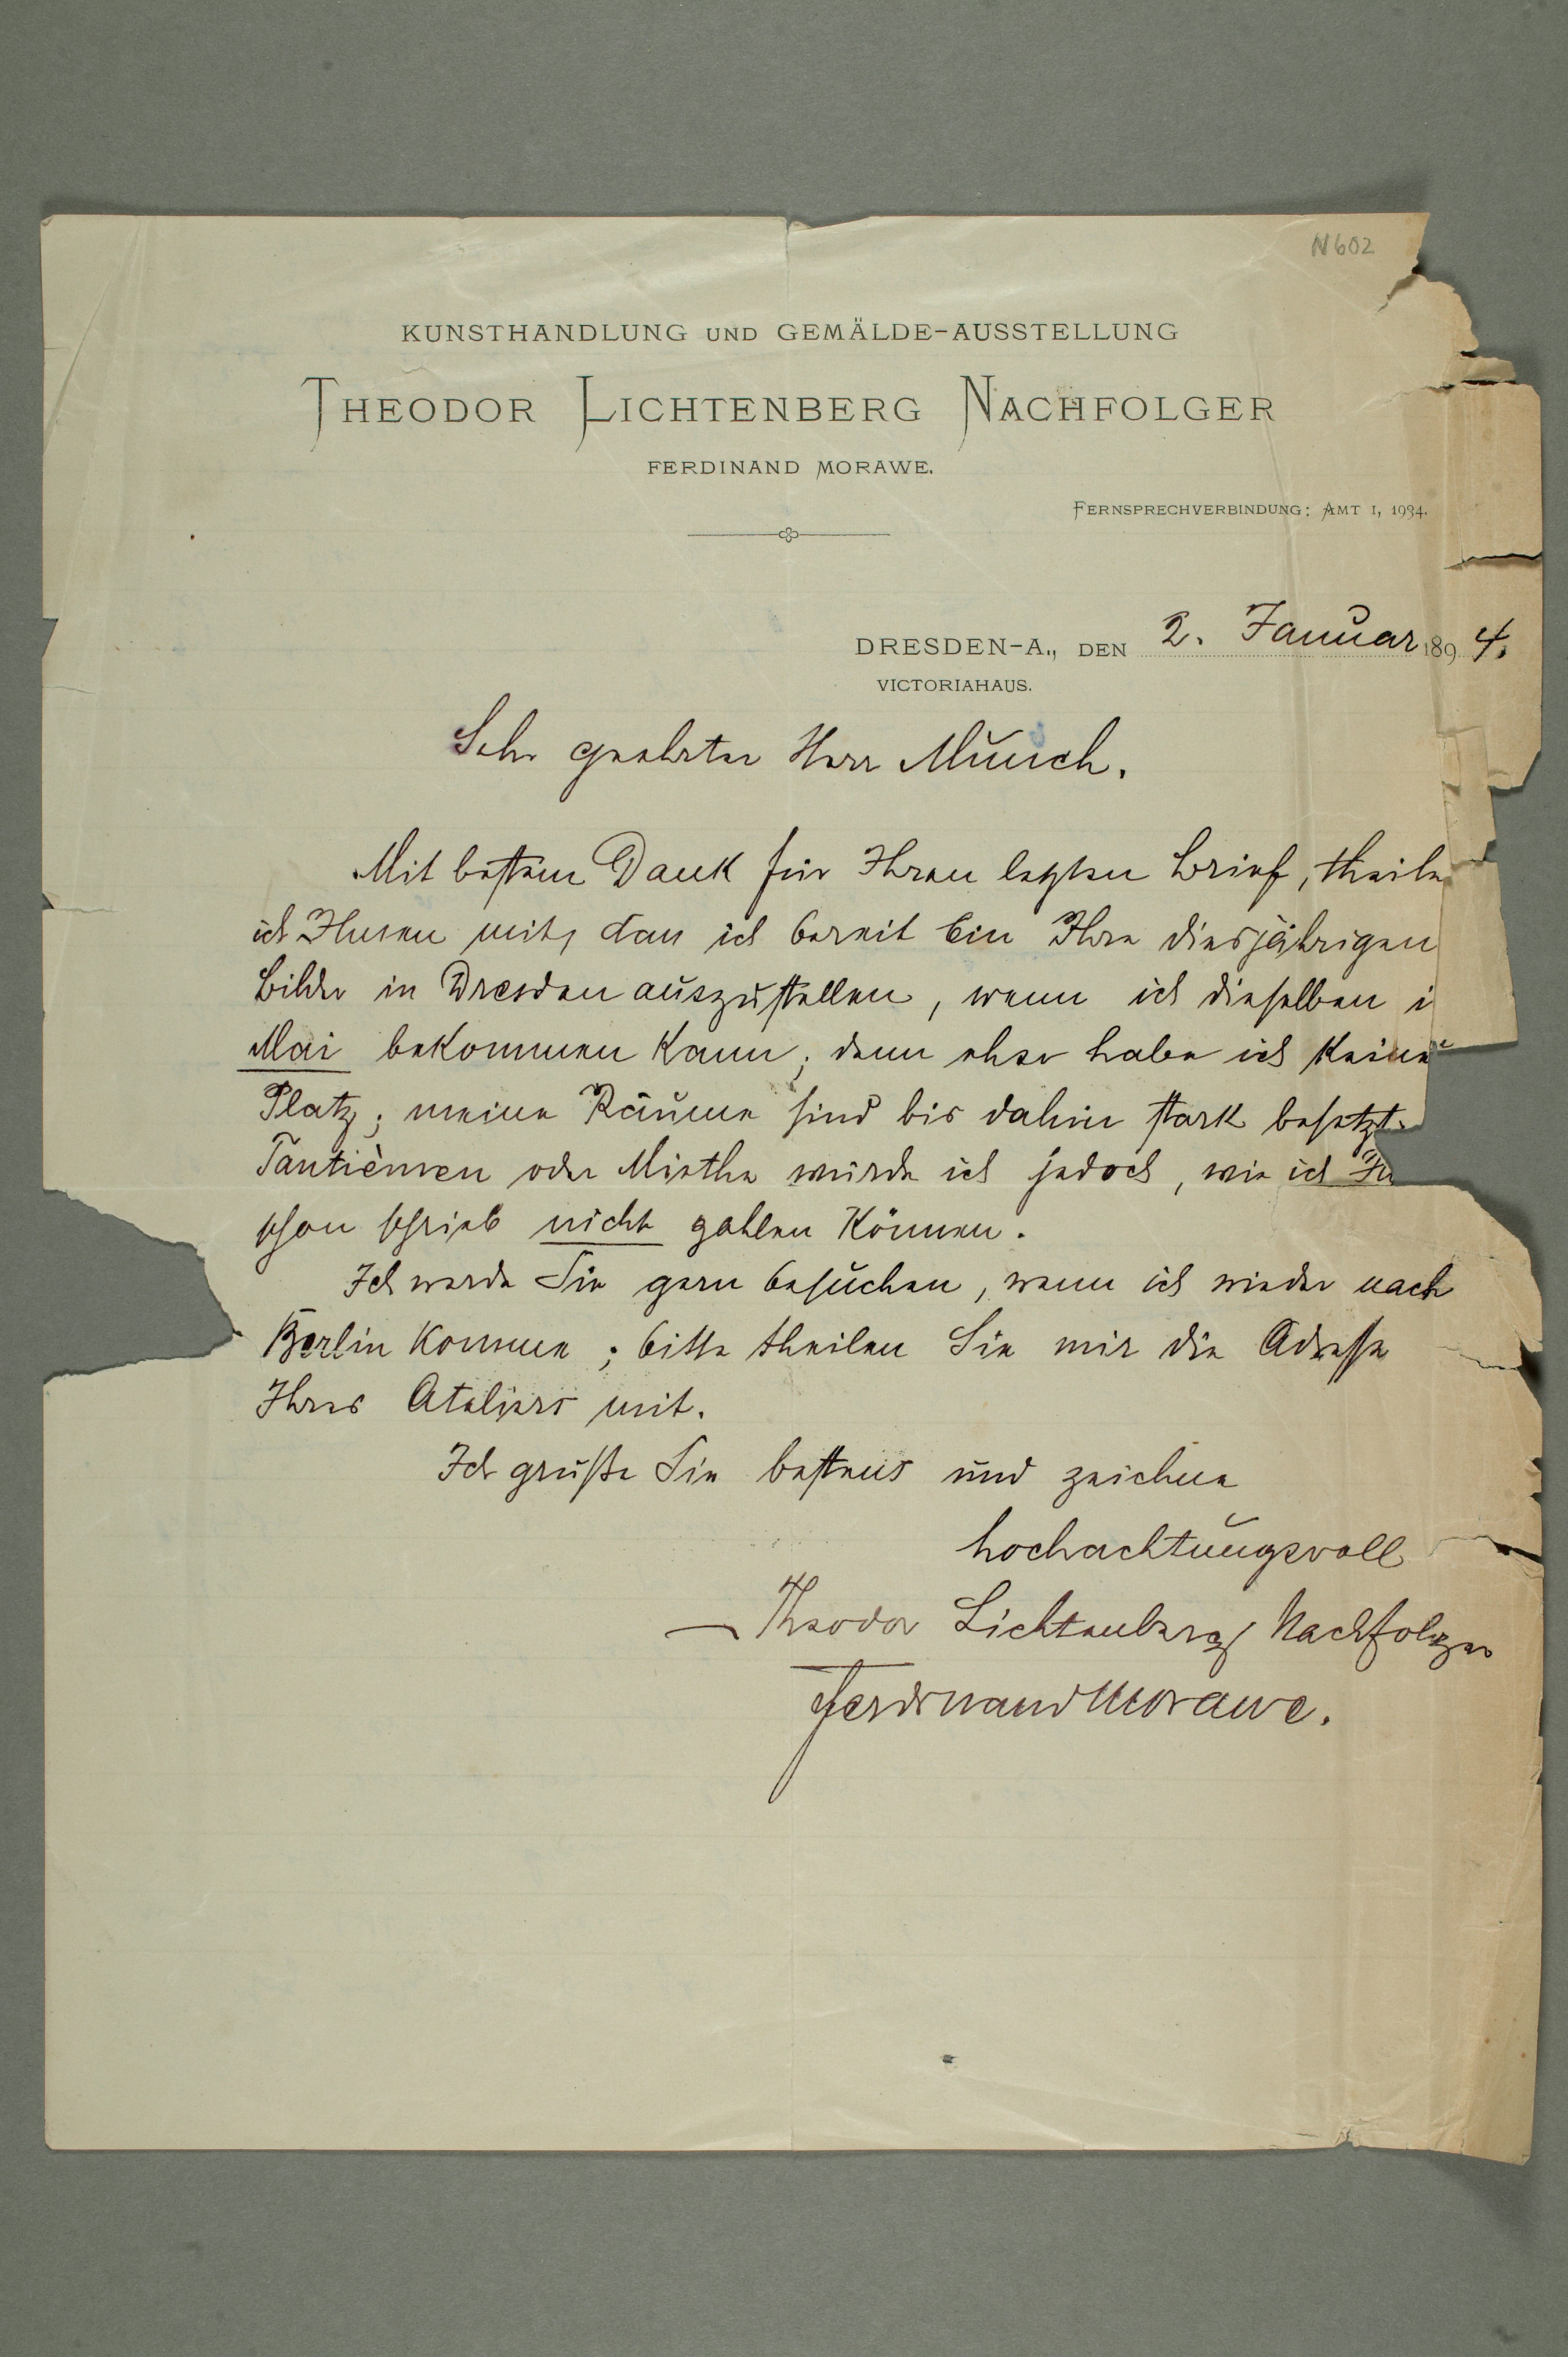 N 602
KUNSTHANDLUNG UND GEMÄLDE-AUSSTELLUNG
THEODOR LICHTENBERG NACHFOLGER
FERDINAND MORAWE.
FERNSPRECHVERBINDUNG: AMT I, 1934.
DRESDEN-A., DEN 2. Januar 1894.
VICTORIAHAUS.
Sehr geehrter Herr Munch.
Mit bestem Dank für Ihren letzten Brief, theile
ich Ihnen mit, dass ich bereit bin Ihre diesjährigen
Bilder in Dresden auszustellen, wenn ich dieselben i
Mai bekommen kann; denn eher habe ich keinen
Platz; meine Räume sind bis dahin stark besetzt.
Tantièmen oder Miethe würde ich jedoch, wie ich Ih
schon schrieb nicht zahlen können.
Ich werde Sie gern besuchen, wenn ich wieder nach
Berlin komme; bitte theilen Sie mir die Adresse
Ihres Ateliers mit.
Ich grüße Sie bestens und zeichne
hochachtungsvoll
Theodor Lichtenberg Nachfolger
Ferdinand Morawe.